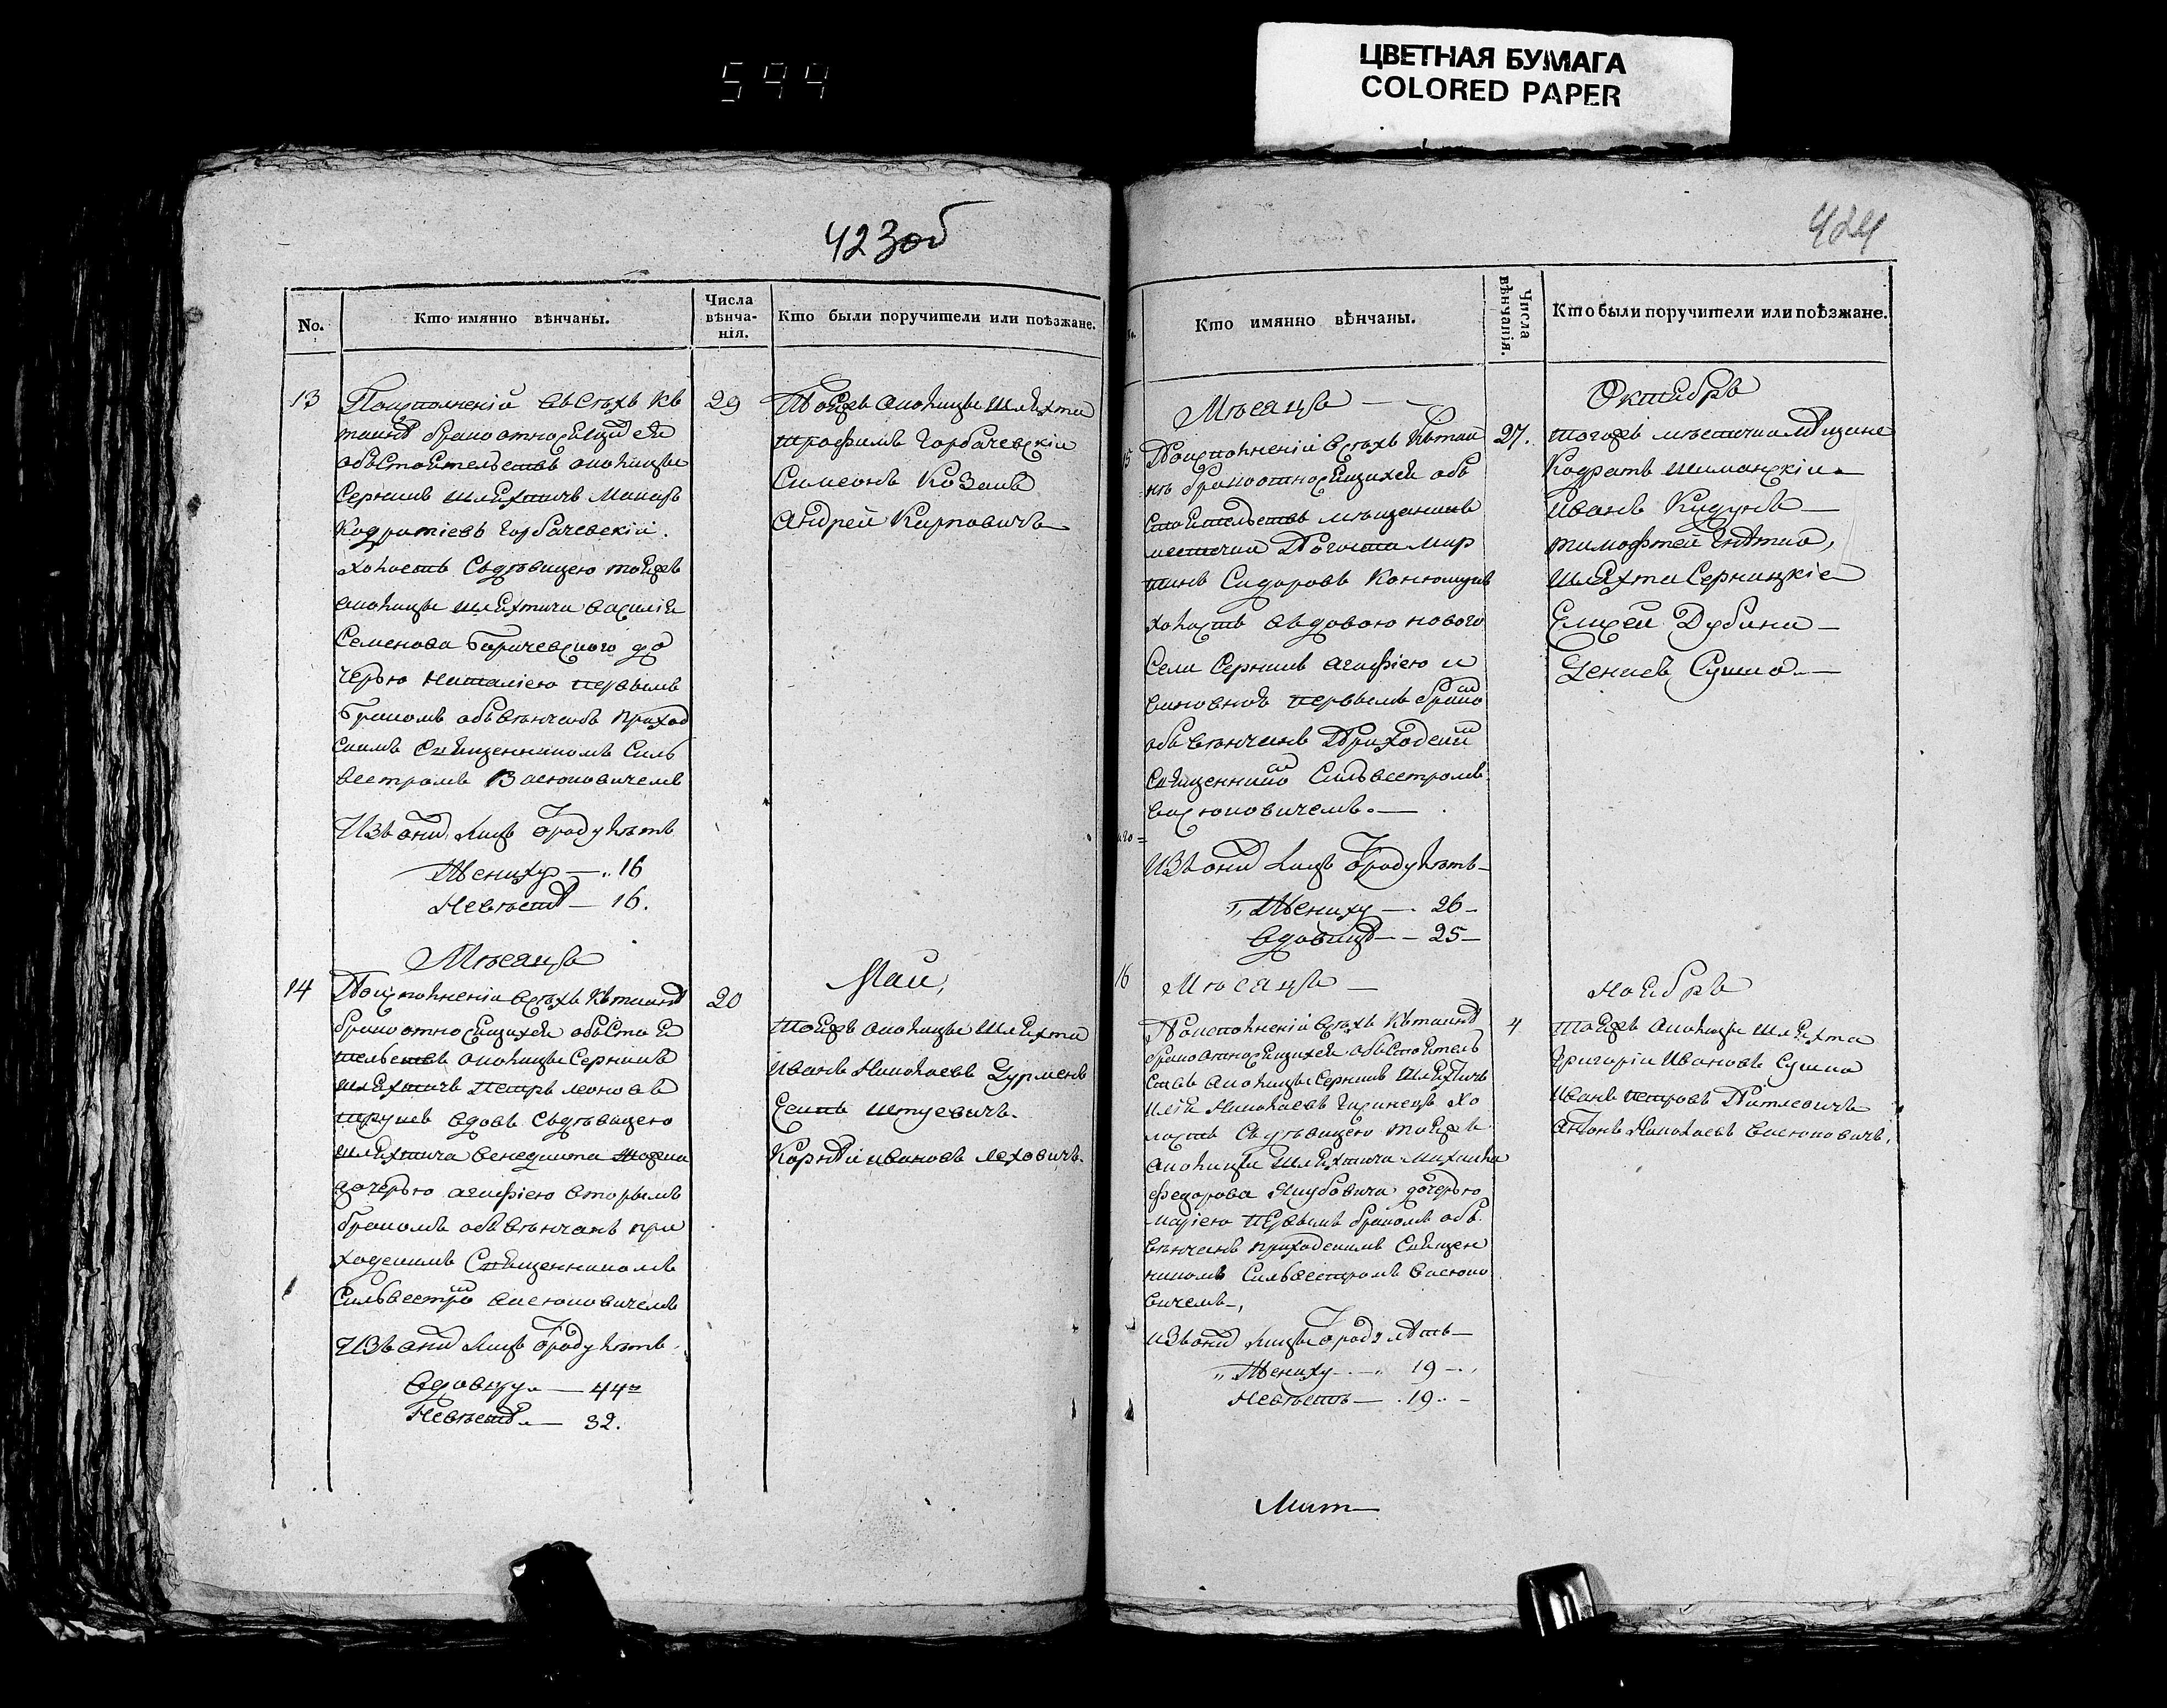 544
ЦВЕТНАЯ БУМАГА
COLORED PAPER
423об
No.
Кто имянно вѣнчаны.
Числа
вѣнча-
нія.
Кто были поручители или поѣзжане.
13
Поисполненіи всѣхъ къ
таинѣ брака относящихся
обьстоятельствъ околицы
Серникъ шляхтичъ Макаръ
Кодратіевъ Горбачевскій.
холостъ съдѣвицею тояжъ
околицы шляхтича Василія
Семенова Боричевского до
черью Наталіею первымъ
бракомъ обьвѣнчанъ приход
скимъ Священникомъ Силь
вестромъ Васюковичемъ
Изъ онихъ лицъ отроду лѣтъ
Жениху — 16
Невѣстѣ — 16.
29
Тояжъ околицы шляхта
Трофимъ Горбачевскіи
Симеонъ
Андрей Карповичъ
Мѣсяца
Маи,
14
Поисполненіи всѣхъ къ таинѣ
брака относящихся обьстоя
тельствъ околицы Серникъ
шляхтичъ Петръ Леоновъ
вдовъ съдѣвицею
шляхтича Венедикта
дочерью Агафіею вторымъ
бракомъ обьвѣнчанъ при
ходскимъ Священникомъ
Сильвестромъ Васюковичемъ
Изъ онихъ лицъ отроду лѣтъ.
Вдовцу — 44
Невѣстѣ — 32.
20
Тояжъ околицы шляхта
Иванъ Николаевъ
Есипъ
Корнѣй Ивановъ Леховичъ.
424
No.
Кто имянно вѣнчаны.
Числа
вѣнчанія.
Кто были поручители или поѣзжане.
Мѣсяца
Октября
15
Поисполненіи всѣхъ къ таи
нѣ брака относящихся обь
стоятельствъ мѣщанинъ
местечка Погоста Мар
тинъ Сидоровъ
холостъ въдовою нового
села Серникъ Агафіею
первымъ бракомъ
обьвѣнчанъ Приходскимъ
Священникомъ Сильвестромъ
Васюковичемъ.
Изъ онихъ лицъ отроду лѣтъ
Жениху — 26
Вдовицѣ — 25
27.
тогожъ мѣстечка мѣщане
Кодратъ Шиманскіи
Иванъ
Тимофтей
шляхта Серницкіе
Елисей Дубина
Сушко
16
Мѣсяца
Ноября
Поисполненіи всѣхъ къ таинѣ
брака относящихся обьстоятель
ствъ околицы Серникъ шляхтичъ
Илія Николаевъ хо
лостъ съдѣвицею тояжъ
околицы шляхтича Михаила
Федорова Якубовича дочерью
Маріею первымъ бракомъ обь
вѣнчанъ приходскимъ Священ
никомъ Сильвестромъ Васюко
вичемъ,
Изъ онихъ лицъ отроду лѣтъ
Жениху — 19
Невѣстѣ — 19
4
тояжъ околицы шляхта
Григоріи Ивановъ Сушко
Иванъ Петровъ
Антонъ Николаевъ Васюковичъ.